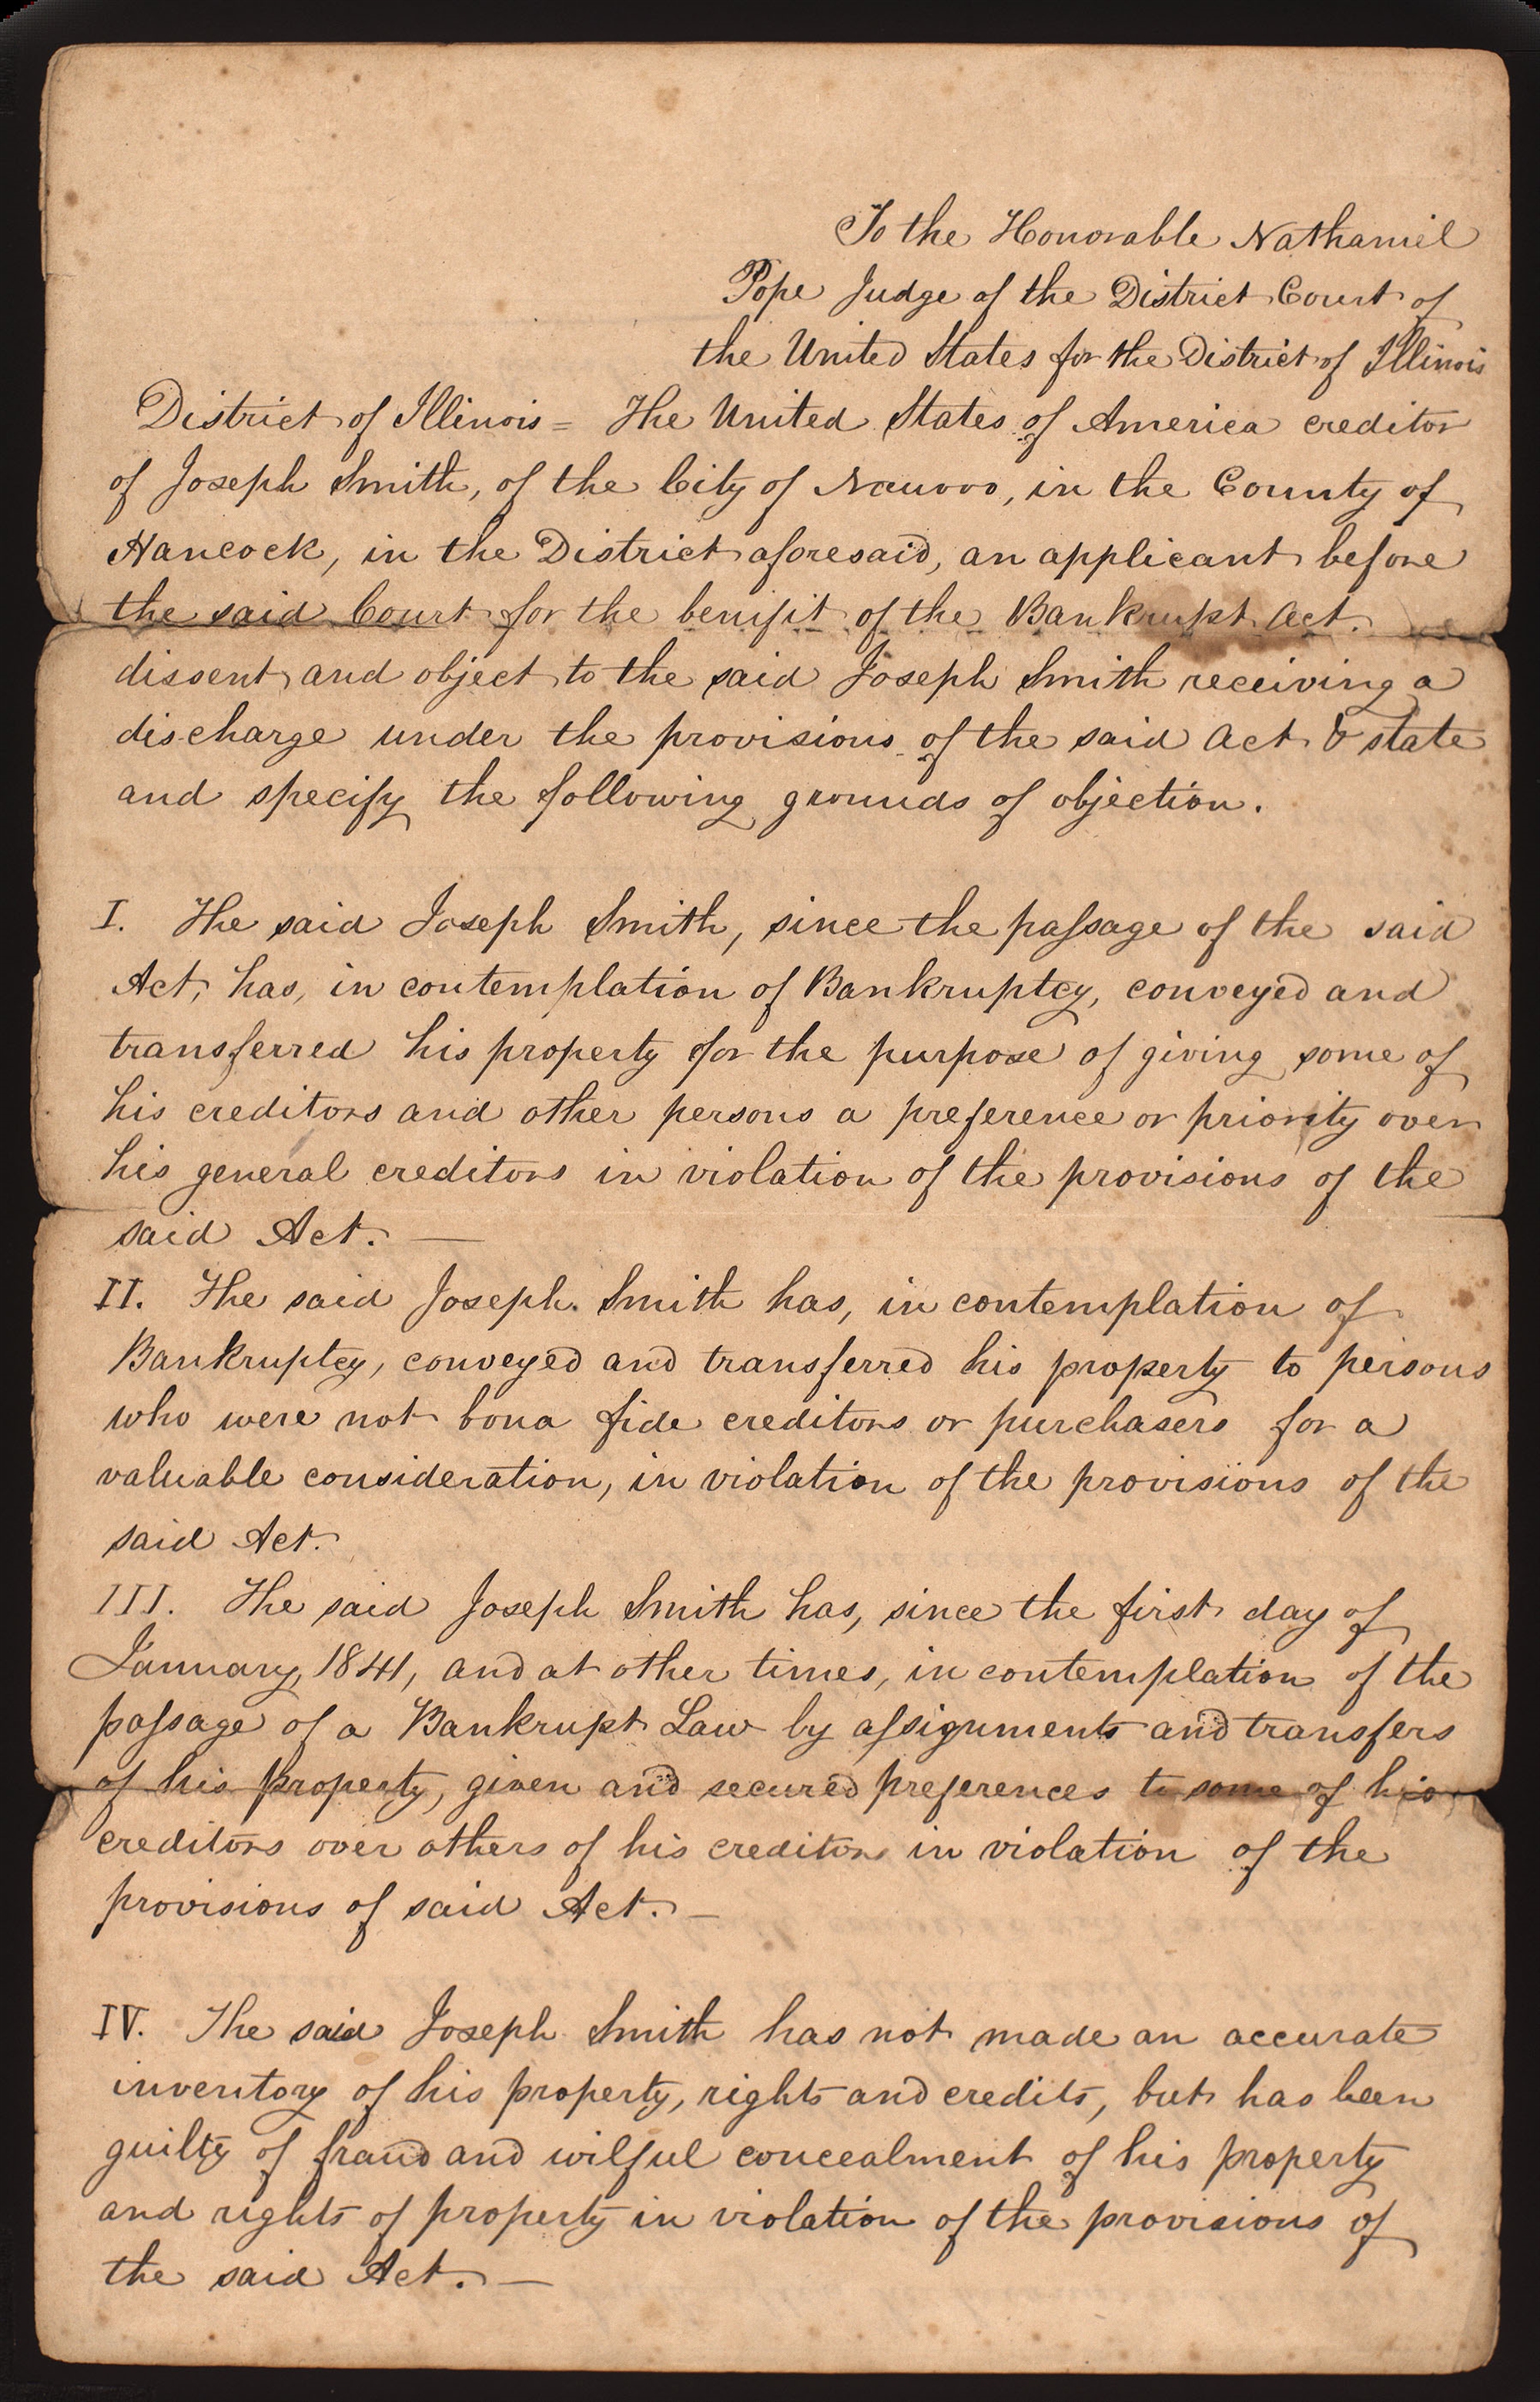 To the Honorable Nathaniel
Pope Judge of the District Court of
the United States for the District of Illinois
District of Illinois = The United States of America creditor
of Joseph Smith, of the City of Nauvoo, in the County of
Hancock, in the District aforesaid, an applicant before
the said Court for the benifit of the Bankrupt Act.
dissent and object to the said Joseph Smith receiving a
discharge under the provisions of the said Act & state
and specify the following grounds of objection.
I. The said Joseph Smith, since the passage of the said
Act, has, in contemplation of Bankruptcy, conveyed and
transferred his property for the purpose of giving some of
his creditors and other persons a preference or priority over
his general creditors in violation of the provisions of the
said Act. —
II. The said Joseph Smith has, in contemplation of
Bankruptcy, conveyed and transferred his property to persons
who were not bona fide creditors or purchasers for a
valuable consideration, in violation of the provisions of the
said Act.
III. The said Joseph Smith has, since the first day of
January, 1841, and at other times, in contemplation of the
passage of a Bankrupt Law by assignments and transfers
of his property, given and secured preferences to some of his
creditors over others of his creditors in violation of the
provisions of said Act. —
IV. The said Joseph Smith has not made an accurate
inventory of his property, rights and credits, but has been
guilty of fraud and wilful concealment of his property
and rights of property in violation of the provisions of
the said Act. —